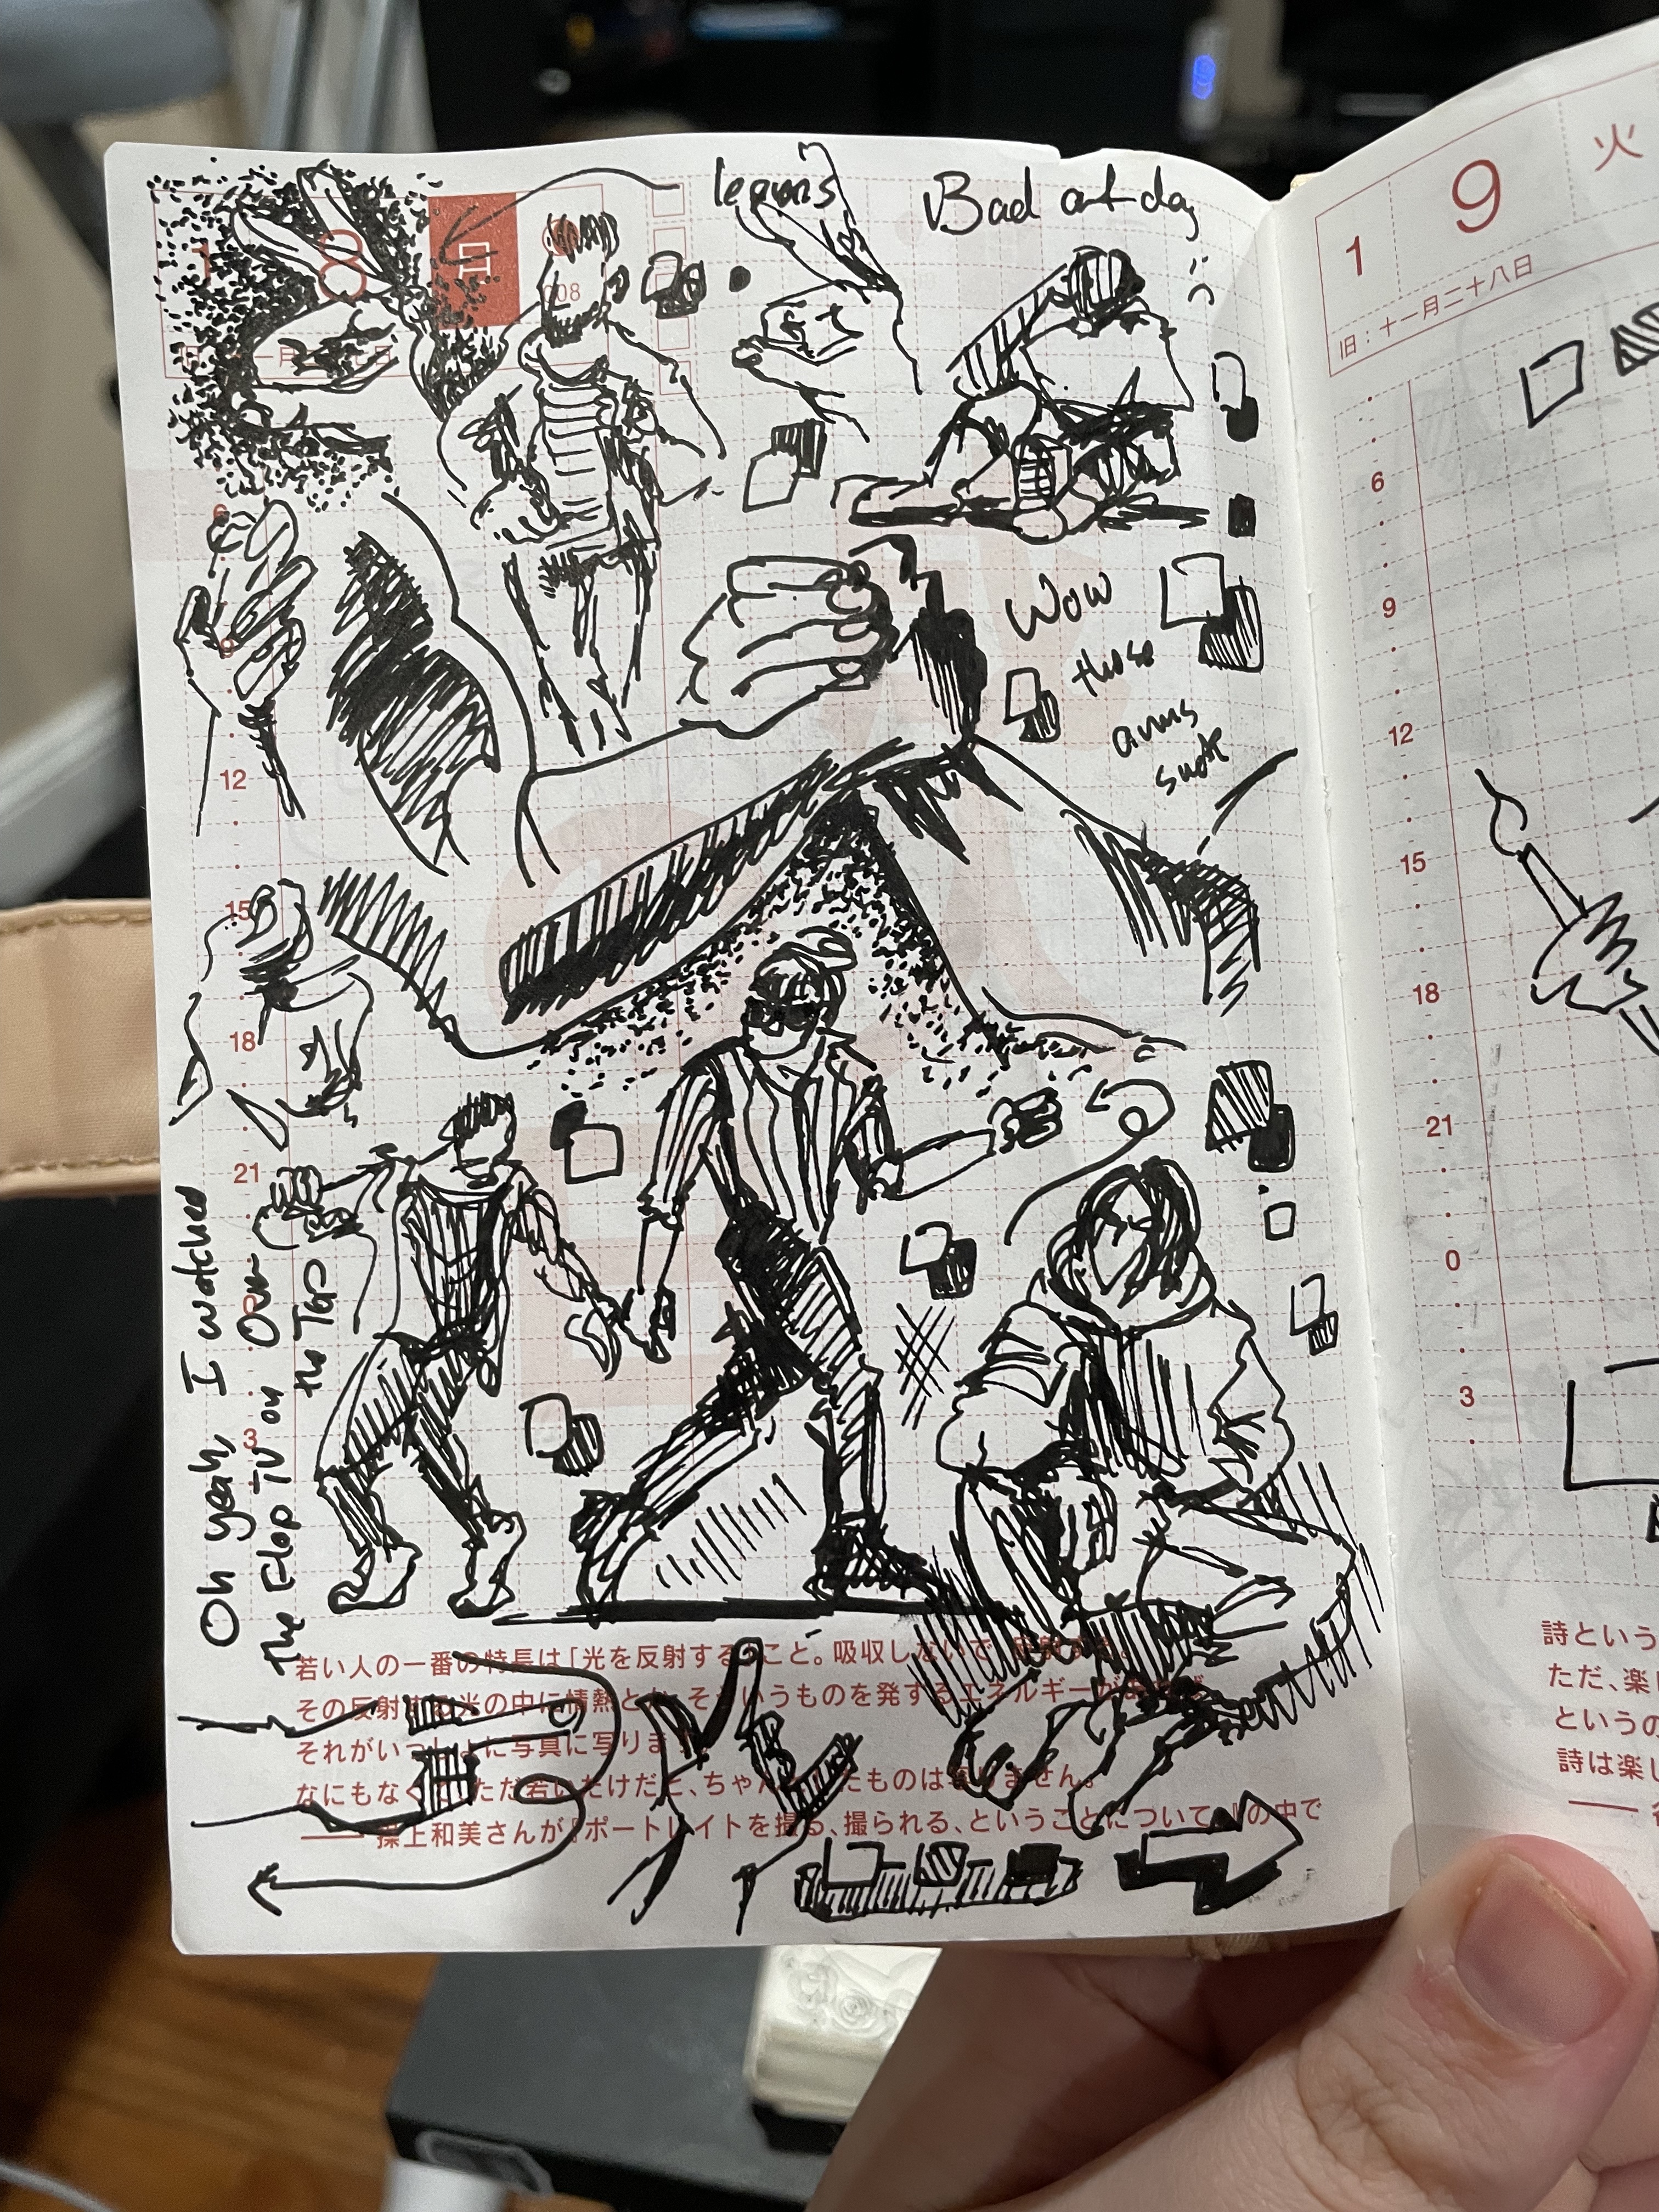 Bad art day
1
8
月
Wow
those
arms
suck
Oh yeah, I watched
The Flop TV on Over
the Top
6
9
12
15
18
21
3
若い人の一番の特長は「光を反射する」こと。吸収しないで
その反射する光の中に情熱とか、そういうものを発するエネルギーが
それがいっしょに写真に写りま
なにもなくて、ただ若いだけだと、ちゃんとしたものは写りません。
—— 操上和美さんが『ポートレイトを撮る、撮られる、ということについて。』の中で
1
9
火
旧：十一月二十八日
6
9
12
15
18
21
0
3
詩という
ただ、楽し
というの
詩は楽し